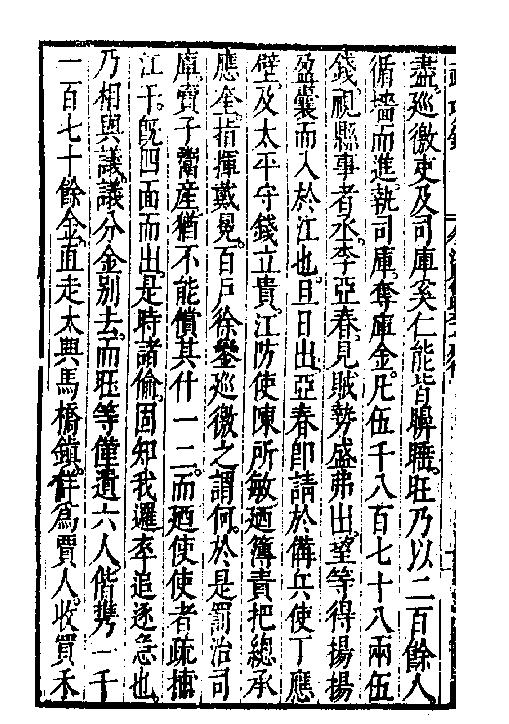 盡巡徼吏及司庫奚仁能皆睥睨旺乃以二百餘人
循墻而進執司庫奪庫金凡伍千八百七十八兩伍
錢視縣事者水李亞春見賊勢盛弗出望等得揚揚
盈囊而入於江也旦日出亞春卽請於備兵使丁應
壁及太平守錢立貴江防使陳所敏廼簿責把總承
應奎指揮戴晃百戶徐鑾巡徼之謂何於是罰治司
庫賣子鬻產猶不能償其什一二而廼使使者疏
江干旣四面而出是時諸偷固知我邏卒追逐急也
乃相與議議分金別去而旺等僅遺六人偕携一千
二百七十餘金直走太興馬橋鎮佯爲賈人收買禾